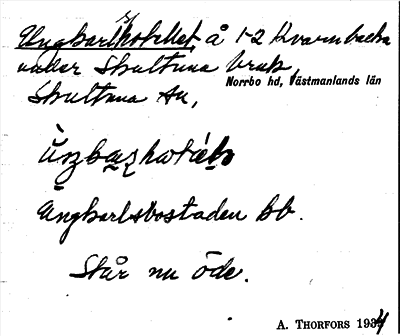 Ungkarlshotellet, å 1-2 Kvarnbacka
under Skultuna bruk,
Norrbo hd, Västmanlands län
Skultuna sn,
Ungkarlsbostaden bb.
Står nu öde.
A. THORFORS 1934